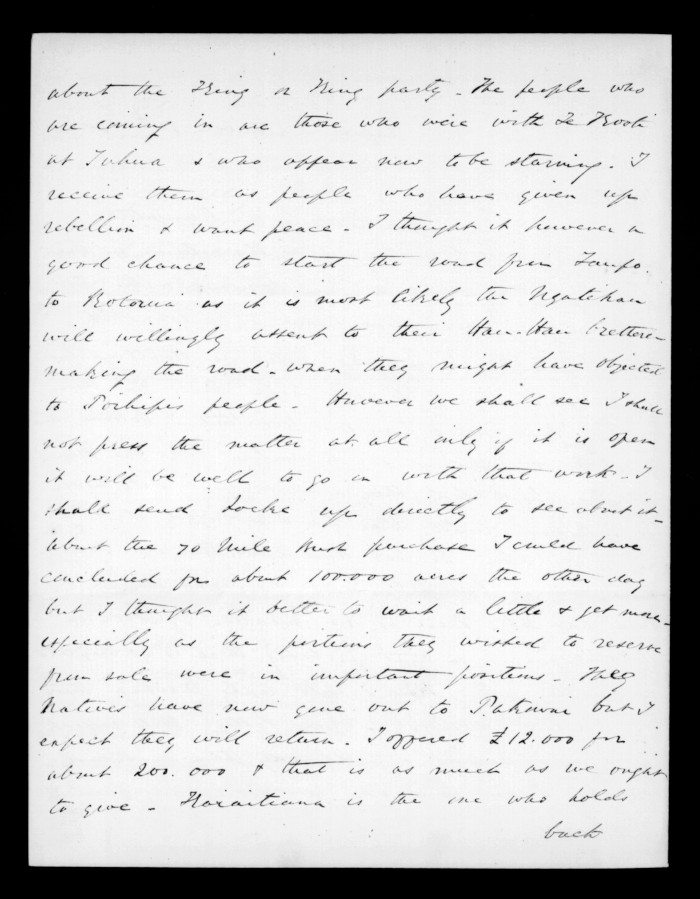 about the King or King party - The people who
are coming in are those who were with Te Kooti
at Tuhua & who appear now to be starving. I
receive them as people who have given up
rebellion & want peace - I thought it however a
good chance to start the road from Taupo.
to Rotorua as it is most likely the Ngatihau
will willingly assent to their Hau-Hau brethren
making the road - when they might have objected
to Poihipis people - However we shall see I shall
not press the matter at all only if it is open
it will be well to go on with that work - I
shall send Locke up directly to see about it -
About the 70 Mile Bush purchase I could have
concluded for about 100.000 acres the other day
but I thought it better to wait a little & get more -
especially as the portions they wished to reserve
from sale were in important positions - They
Natives have now gone out to Patowai but I
expect they will return - I offered £12.000 for
about 200.000 & that is as much as we ought
to give - Karaitiana is the one who holds
back